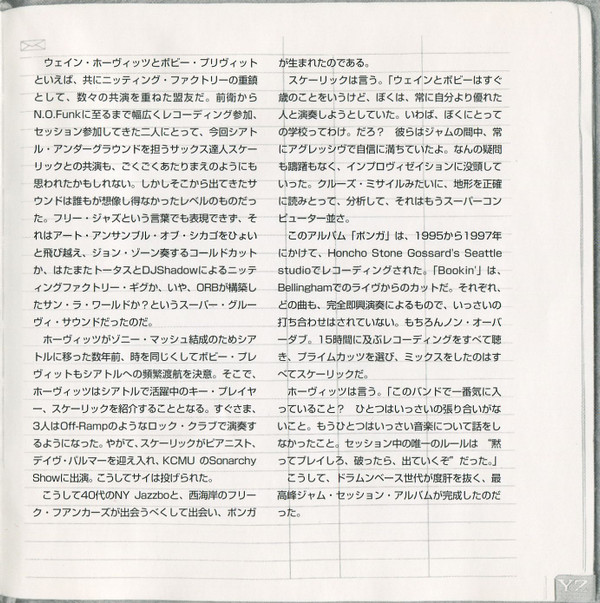 ウェイン・ホーヴィッツとボビー・プリヴィット
といえば、共にニッティング・ファクトリーの重鎮
として、数々の共演を重ねた盟友だ。前衛から
N.O.Funkに至るまで幅広くレコーディング参加、
セッション参加してきた二人にとって、今回シアト
ル・アンダーグラウンドを担うサックス達人スケー
リックとの共演も、ごくごくあたりまえのようにも
思われたかもしれない。しかしそこから出てきたサ
ウンドは誰もが想像し得なかったレベルのものだっ
た。フリー・ジャズという言葉でも表現できず、そ
れはアート・アンサンブル・オブ・シカゴをひょい
と飛び越え、ジョン・ゾーン奏するコールドカット
か、はたまたトータスとDJShadowによるニッテ
ィングファクトリー・ギグか、いや、ORBが構築し
たサン・ラ・ワールドか?というスーパー・グルー
ヴィ・サウンドだったのだ。
ホーヴィッツがゾニー・マッシュ結成のためシア
トルに移った数年前、時を同じくしてボビー・プレ
ヴィットもシアトルへの頻繁渡航を決意。そこで、
ホーヴィッツはシアトルで活躍中のキー・プレイヤ
ー、スケーリックを紹介することとなる。すぐさま、
3人はOff-Rampのようなロック・クラブで演奏す
るようになった。やがて、スケーリックがピアニスト、
デイヴ・パルマーを迎え入れ、KCMU のSonarchy
Showに出演。こうしてサイは投げられた。
こうして40代のNY Jazzboと、西海岸のフリー
ク・フアンカーズが出会うべくして出会い、ポンガ
が生まれたのである。
スケーリックは言う。「ウェインとボビーはすぐ
歳のことをいうけど、ぼくは、常に自分より優れた
人と演奏しようとしていた。いわば、ぼくにとって
の学校ってわけ。だろ? 彼らはジャムの間中、常
にアグレッシヴで自信に満ちていたよ。なんの疑問
も躊躇もなく、インプロヴィゼイションに没頭して
いった。クルーズ・ミサイルみたいに、地形を正確
に読みとって、分析して、それはもうスーパーコン
ピューター並さ。
このアルバム「ポンガ」は、1995から1997年
にかけて、Honcho Stone Gossard's Seattle
studioでレコーディングされた。「Bookin'」は、
Bellinghamでのライヴからのカットだ。それぞれ、
どの曲も、完全即興演奏によるもので、いっさいの
打ち合わせはされていない。もちろんノン・オーバ
ーダブ。15時間に及ぶレコーディングをすべて聴
き、プライムカッツを選び、ミックスをしたのはす
べてスケーリックだ。
ホーヴィッツは言う。「このバンドで一番気に入
っていること? ひとつはいっさいの張り合いがな
いこと。もうひとつはいっさい音楽について話をし
なかったこと。セッション中の唯一のルールは “黙
ってプレイしろ、破ったら、出ていくぞ” だった。」
こうして、ドラムンベース世代が度肝を抜く、最
高峰ジャム・セッション・アルバムが完成したのだ
った。
YZ